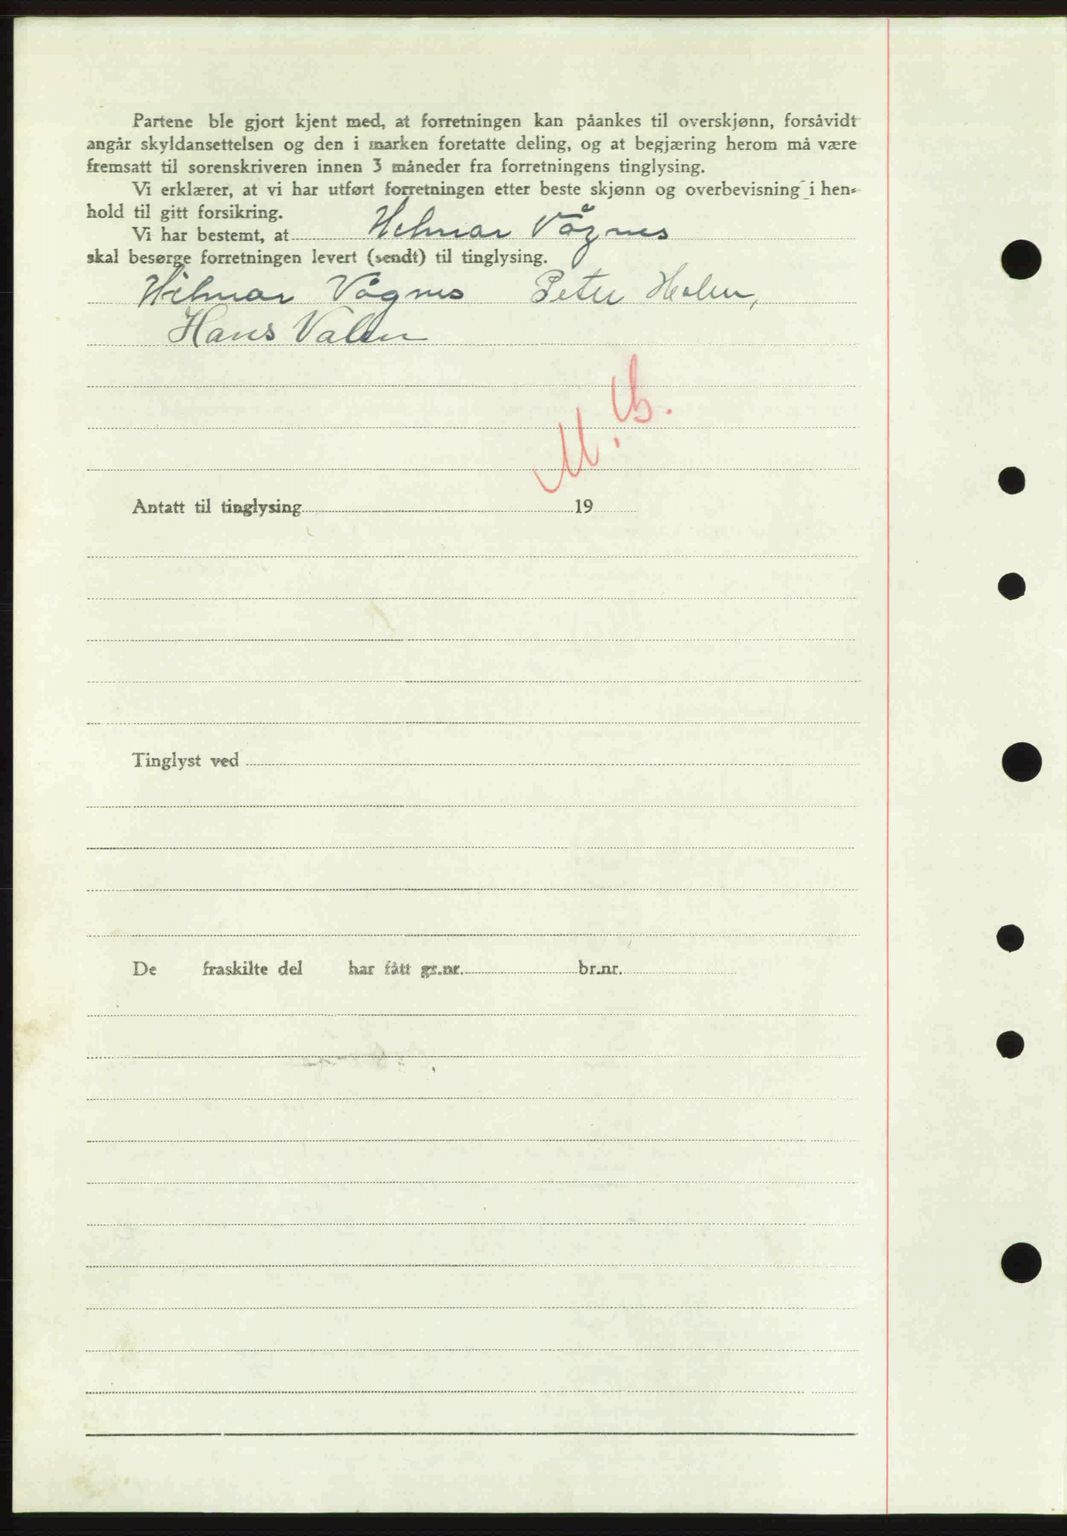 Partene ble gjort kjent med, at forretningen kan påankes til overskjønn, forsåvidt
angår skyldansettelsen og den i marken foretatte deling, og at begjæring herom må være
fremsatt til sorenskriveren innen 3 måneder fra forretningens tinglysing.
Vi erklærer, at vi har utført forretningen etter beste skjønn og overbevisning i hen-
hold til gitt forsikring.
Vi har bestemt, at Hilmar Vågnes
skal besørge forretningen levert (sendt) til tinglysing.
Hilmar Vågnes Peter Holen,
Hans Valen
M.b.
Antatt til tinglysing 19
Tinglyst ved
De fraskilte del har fått gr.nr. br.nr.